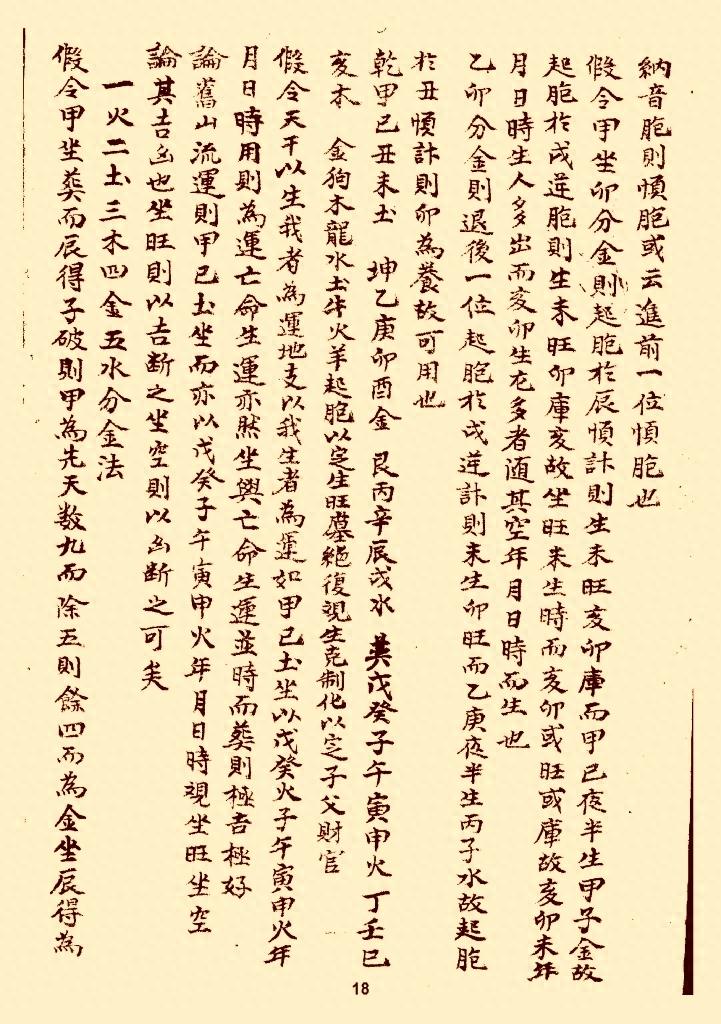 納音胞則順胞或云進前一位順胞也
假令甲坐卯分金則起胞於辰順計則生未旺亥卯庫而甲己夜半生甲子金故
起胞於戌逆胞則生未旺卯庫亥故坐旺未生時而亥卯或旺或庫故亥卯未年
月日時生人多出而亥卯生尤多者随其空年月日時而生也
乙卯分金則退後一位起胞於戌逆計則未生卯旺而乙庚夜半生丙子水故起胞
於丑順計則卯為養故可用也
乾甲己丑未土 坤乙庚卯酉金 艮丙辛辰戌水 巽戊癸子午寅申火 丁壬巳
亥木 金狗木龍水土牛火羊起胞以定生旺墓絕復視生克制化以定子父財官
假令天干以生我者為運地支以我生者為運如甲己土坐以戊癸火子午寅申火年
月日時用則為運亡命生運亦然坐與亡命生運並時而葬則極吉極好
論舊山流運則甲己土坐而亦以戊癸子午寅申火年月日時視坐旺坐空
論其吉凶也坐旺則以吉断之坐空則以凶断之可矣
一火二土三木四金五水分金法
假令甲坐葬而辰得子破則甲為先天数九而除五則餘四而為金坐辰得為
18